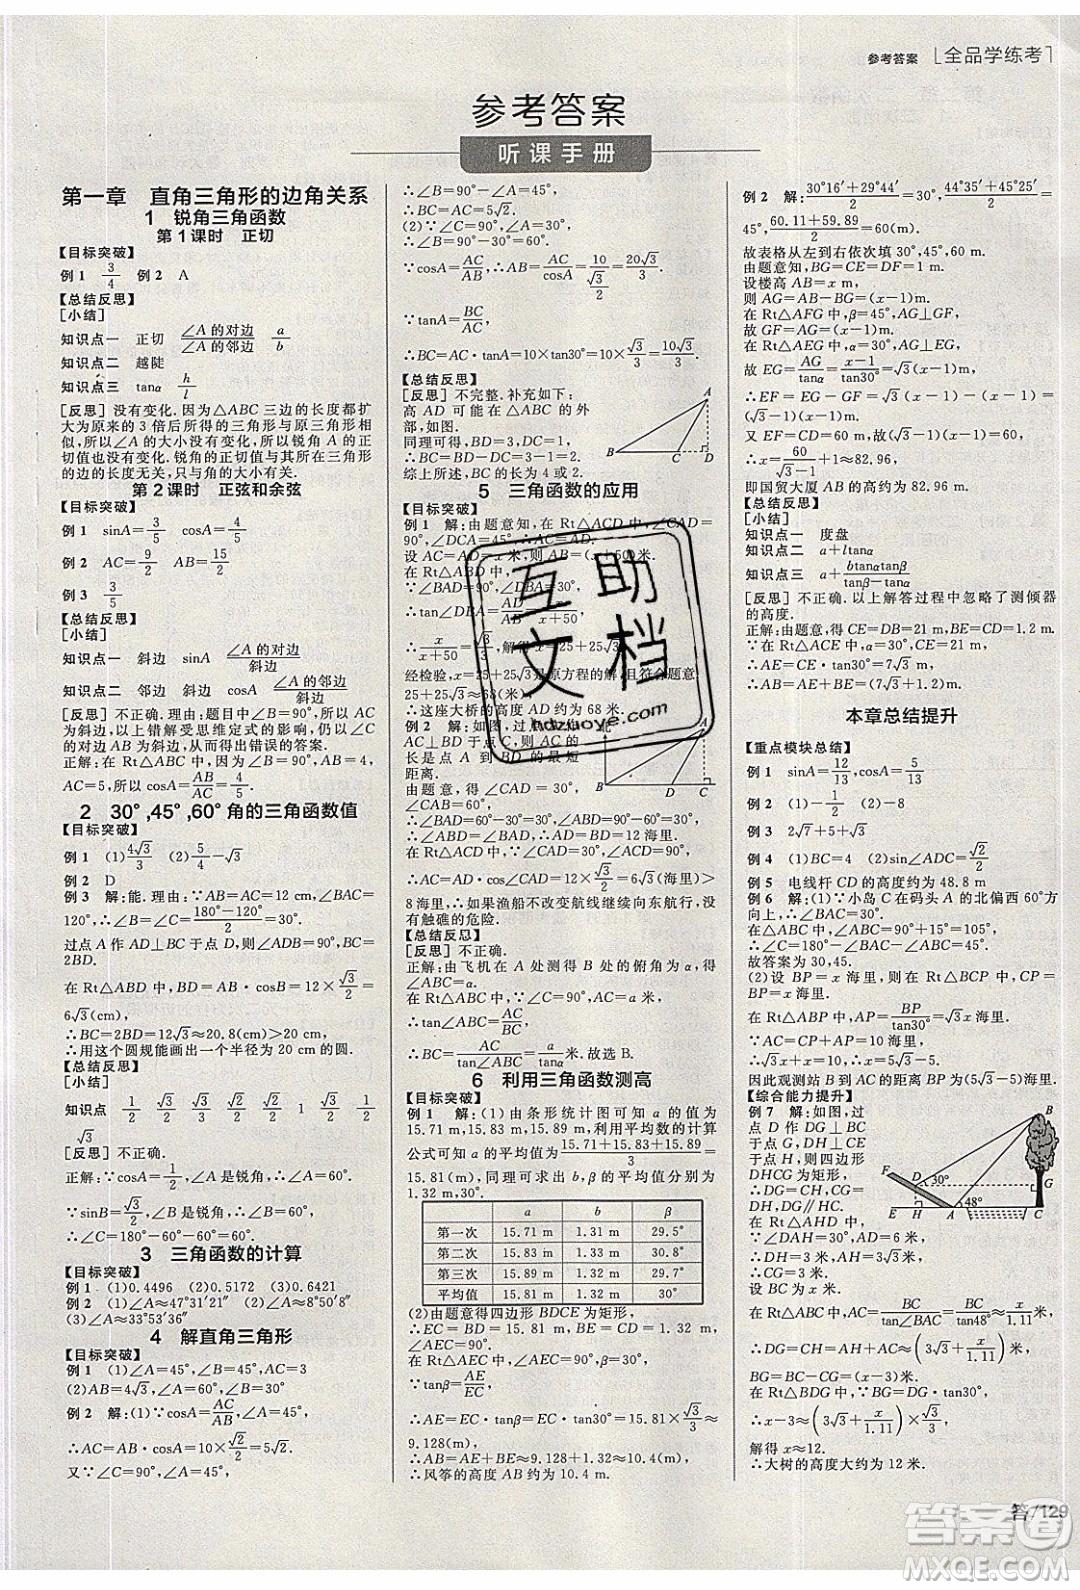 参考答案 [全品学练考]
参考答案
听课手册
第一章 直角三角形的边角关系
1 锐角三角函数
第1课时 正切
【目标突破】
例1 3/4 例2 A
【总结反思】
[小结]
知识点一 正切 ∠A的对边/∠A的邻边 a/b
知识点二 越陡
知识点三 tanα h/l
[反思] 没有变化.因为△ABC三边的长度都扩
大为原来的3倍后所得的三角形与原三角形相
似,所以∠A的大小没有变化,所以锐角A的正
切值也没有变化.锐角的正切值与其所在三角形
的边的长度无关,只与角的大小有关.
第2课时 正弦和余弦
【目标突破】
例1 sinA=3/5 cosA=4/5
例2 AC=9/2 AB=15/2
例3 3/5
【总结反思】
[小结]
知识点一 斜边 sinA ∠A的对边/斜边
知识点二 邻边 斜边 cosA ∠A的邻边/斜边
[反思] 不正确.理由:题目中并未明确指出AC
为斜边,解答时受思维定式的影响,习惯性地以
为∠B=90°,从而得出错误的答案.
正解:在Rt△ABC中,∵∠C=90°,∴AB为斜
边,所以cosA=AC/AB=4/5.
2 30°,45°,60°角的三角函数值
【目标突破】
例1 (1)4√3/3 (2)5/4-√3
例2 D
例3 解:能.理由:∵AB=AC=12 cm,∠BAC=
120°,∴∠B=∠C=(180°-120°)/2=30°.
过点A作AD⊥BC于点D,则∠ADB=90°,BC=
2BD.
在Rt△ABD中,BD=AB·cosB=12×√3/2=
6√3(cm),
∴BC=2BD=12√3≈20.8(cm)>20 cm,
∴用这个圆规能画出一个半径为20 cm的圆.
【总结反思】
[小结]
知识点 1/2 √3/2 √3/3 √2/2 √2/2 1 √3/2
1/2 √3
[反思] 不正确.
正解:∵cosA=1/2,∠A是锐角,∴∠A=60°.
∵sinB=√2/2,∠B是锐角,∴∠B=45°,
∴∠C=180°-60°-45°=75°.
3 三角函数的计算
【目标突破】
例1 (1)0.4496 (2)0.5172 (3)0.6421
例2 (1)∠A≈47°31′27″ (2)∠A≈8°50′31″
(3)∠A≈33°53′36″
4 解直角三角形
【目标突破】
例1 (1)∠A=45°,∠B=45°,AC=3
(2)AB=4√3,∠A=60°,∠B=30°
例2 解:(1)∵cosA=AC/AB,∠A=45°,
∴AC=AB·cosA=10×√2/2=5√2.
又∵∠C=90°,∠A=45°,
∴∠B=90°-∠A=45°,
∴BC=AC=5√2.
(2)∵∠C=90°,∠A=30°,
∴∠B=90°-∠A=60°.
∵cosA=AC/AB,∴AB=AC/cosA=10/(√3/2)=20√3/3.
∵tanA=BC/AC,
∴BC=AC·tanA=10×tan30°=10×√3/3=10√3/3.
【总结反思】
[反思] 不完整.补充如下:
高AD可能在△ABC的外
部,如图.
同理可得,BD=3,CD=1,
∴BC=BD-CD=3-1=2.
综上所述,BC的长为4或2.
A
B C D
5 三角函数的应用
【目标突破】
例1 解:由题意知,在Rt△ACD中,∠CAD=
90°,∠DCA=45°,∴AC=AD.
设AC=AD=x米,则AB=(x+50)米.
在Rt△ABD中,∵∠DAB=90°,∠DBA=30°,
∴tan∠DBA=AD/AB=AD/(AC+50),
∴x/(x+50)=√3/3,解得x=25+25√3.
经检验,x=25+25√3是原方程的解,且符合题意.
25+25√3≈68(米).
∴这座大桥的高度约为68米.
AC⊥BD于点C,则AC的
长是点A到BD的最短
距离.
∴∠ABD=∠BAD,
∴BD=AD=12海里.
8海里,
∴如果渔船不改变航线继续向东航行,没
有触礁的危险.
【总结反思】
[反思] 不正确.
正解:由飞机在A处测得B处的俯角为α,得
∠ABC=α.
∵tan∠ABC=AC/BC,
∴BC=AC/tan∠ABC=a/tanα米.故选B.
6 利用三角函数测高
【目标突破】
例1 解:(1)由条形统计图可知a的值为
15.71 m,15.83 m,15.89 m,利用平均数的计算
公式可知a的平均值为(15.71+15.83+15.89)/3=
15.81(m),同理可求b,β的平均值分别为
1.32 m,30°.
a b β
第一次 15.71 m 1.31 m 29.5°
第二次 15.83 m 1.33 m 30.8°
第三次 15.89 m 1.32 m 29.7°
平均值 15.81 m 1.32 m 30°
(2)由题意得四边形BDCE为矩形,
∴EC=BD=15.81 m,BE=CD=1.32 m,
∠AEC=90°.
在Rt△AEC中,∠AEC=90°,∠ACE=β=30°.
∵tanβ=AE/EC,
∴AE=EC·tanβ=EC·tan30°=15.81×√3/3≈
9.128(m),
∴AB=AE+BE≈9.128+1.32≈10.4(m).
∴风筝的高度AB约为10.4 m.
例2 解:(30°16′+29°44′)/2=30°,(44°35′+45°25′)/2=
45°,(60.11+59.89)/2=60(m).
故表格从左到右依次填30°,45°,60 m.
由题意知,BG=CE=DF=1 m.
设楼高AB=x m,
则AG=AB-BG=(x-1)m.
在Rt△AFG中,β=45°,∠AGF=90°,
故GF=AG=(x-1)m.
在Rt△AEG中,α=30°,∠AGE=90°,
故EG=AG/tanα=(x-1)/tan30°=√3(x-1)m,
∴EF=EG-GF=√3(x-1)-(x-1)=
(√3-1)(x-1)m.
又EF=CD=60 m,故(√3-1)(x-1)=60,
∴x=60/(√3-1)+1≈82.96,
即国贸大厦AB的高度约为82.96 m.
【总结反思】
[小结]
知识点一 度盘
知识点二 a+ltanα
知识点三 a+btanαtanβ/(tanβ-tanα)
[反思] 不正确.以上解答过程中忽略了测倾器
的高度.
本章总结提升
【重点模块总结】
例1 sinA=12/13,cosA=5/13
例2 (1)-1/2 (2)-8
例3 2√7+5+√3
例4 (1)BC=4 (2)sin∠ADC=√2/2
例5 电线杆CD的高度约为48.8 m
例6 解:(1)∵小岛C在码头A的北偏西60°方
向上,∴∠CAB=90°-60°=30°.
∴∠C=180°-30°-105°=45°.
故答案为30,45.
(2)设BP=x海里,在Rt△BCP中,CP=
BP=x海里.
在Rt△ABP中,∠A=30°,∴AP=BP/tan30°=√3x海里.
∴√3x+x=10,解得x=5√3-5.
因此观测站B到AC的距离BP为(5√3-5)海里.
【综合能力提升】
例7 解:如图,过
点D作DG⊥BC
于点G,DH⊥CE
于点H,则四边形
GDHC为矩形,
∴DG=CH,CG=
DH,DG∥HC,
∴∠DAH=∠FAE=30°.
在Rt△AHD中,∵∠DAH=30°,AD=6米,
∴DH=3米,AH=3√3米,∴CG=3米.
设BC为x米.
在Rt△ABC中,AC=BC/tan∠BAC=BC/tan48°≈x/1.11米,
∴DG=CH=AH+AC=(3√3+x/1.11)米,
BG=BC-CG=(x-3)米.
在Rt△BDG中,∵BG=DG·tan30°,
∴x-3=(3√3+x/1.11)×√3/3,
解得x≈12.5.
∴大树的高度大约为12.5米.
B
F D 30° G
48°
E H A C
互助
文档
hdzuoye.com
答/129
答案圈
MXQE.COM